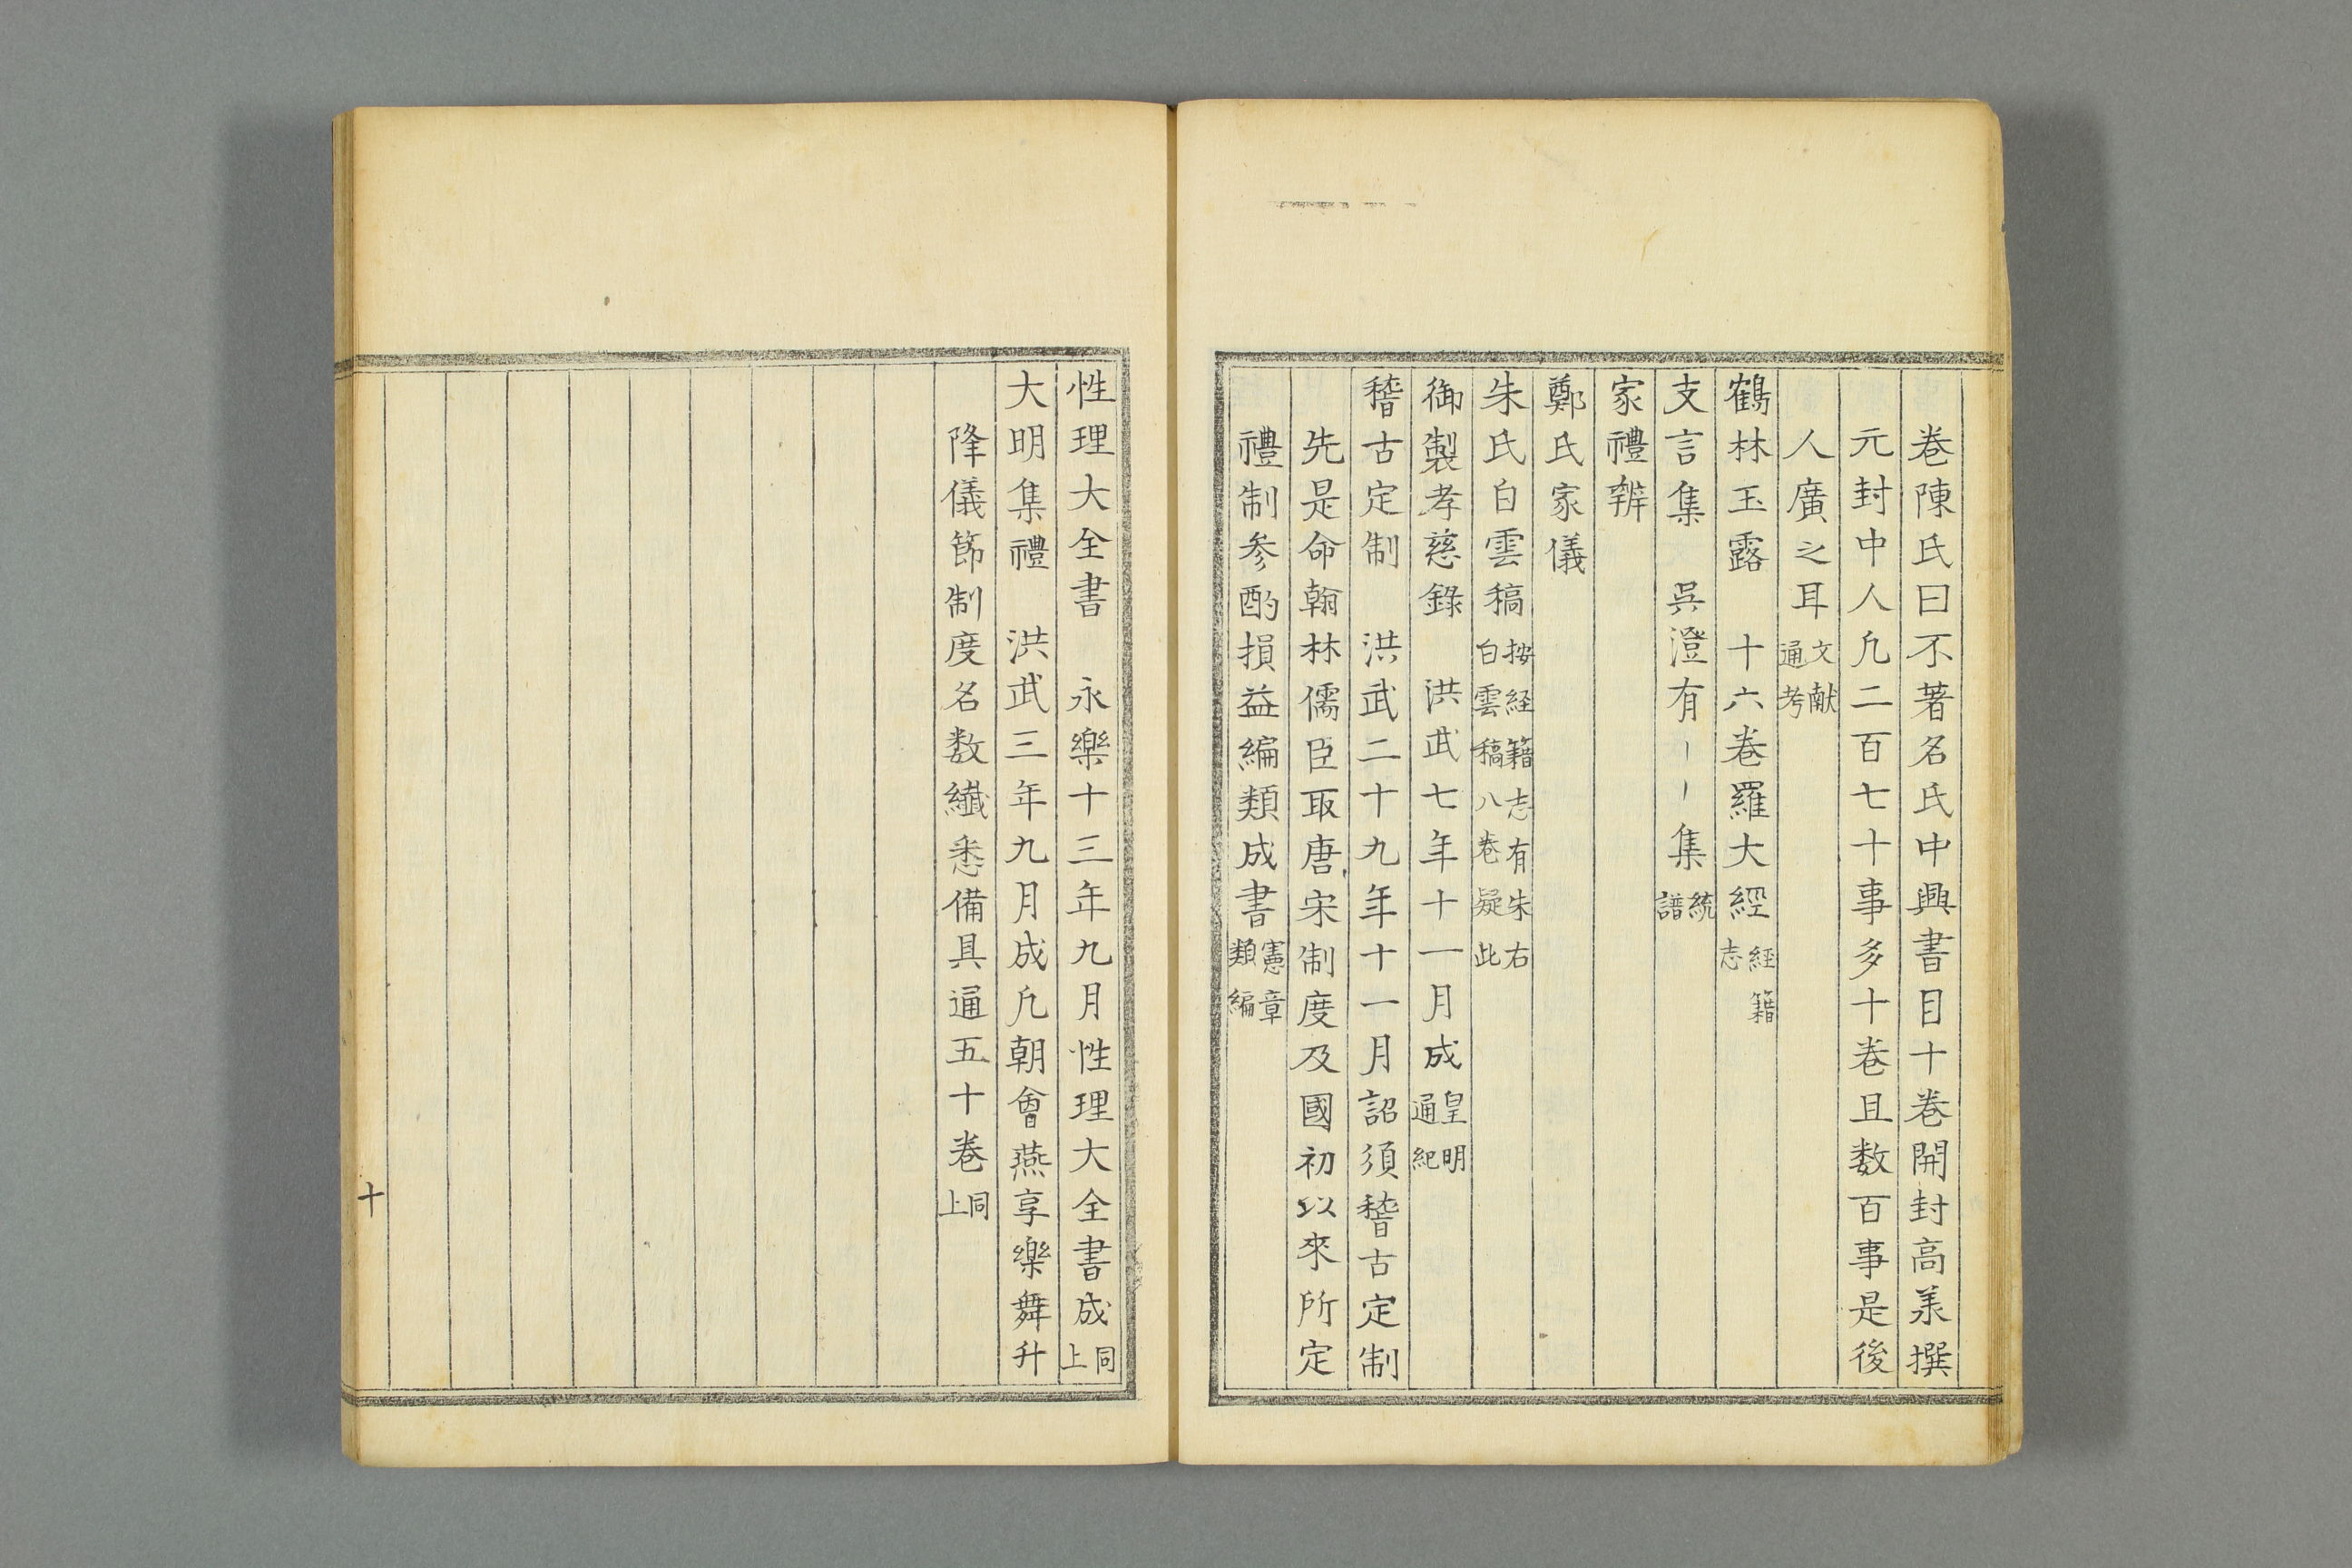 卷陳氏曰不著名氏中興書目十卷開封高羕撰
元封中人凢二百七十事多十卷且数百事是後
人廣之耳文献通考
鶴林玉露　十六卷羅大經經籍志
支言集　吳澄有〡〡集統譜
家禮辨
鄭氏家儀
朱氏白雲稿按経籍志有朱右白雲稿八卷疑此
御製孝慈錄　洪武七年十一月成皇明通紀
稽古定制　洪武二十九年十一月詔須稽古定制
先是命翰林儒臣取唐宋制度及國初以來所定
禮制参酌損益編類成書憲章類編
性理大全書　永樂十三年九月性理大全書成同上
大明集禮　洪武三年九月成凢朝會燕享樂舞升
降儀節制度名数纖悉備具通五十卷同上
十